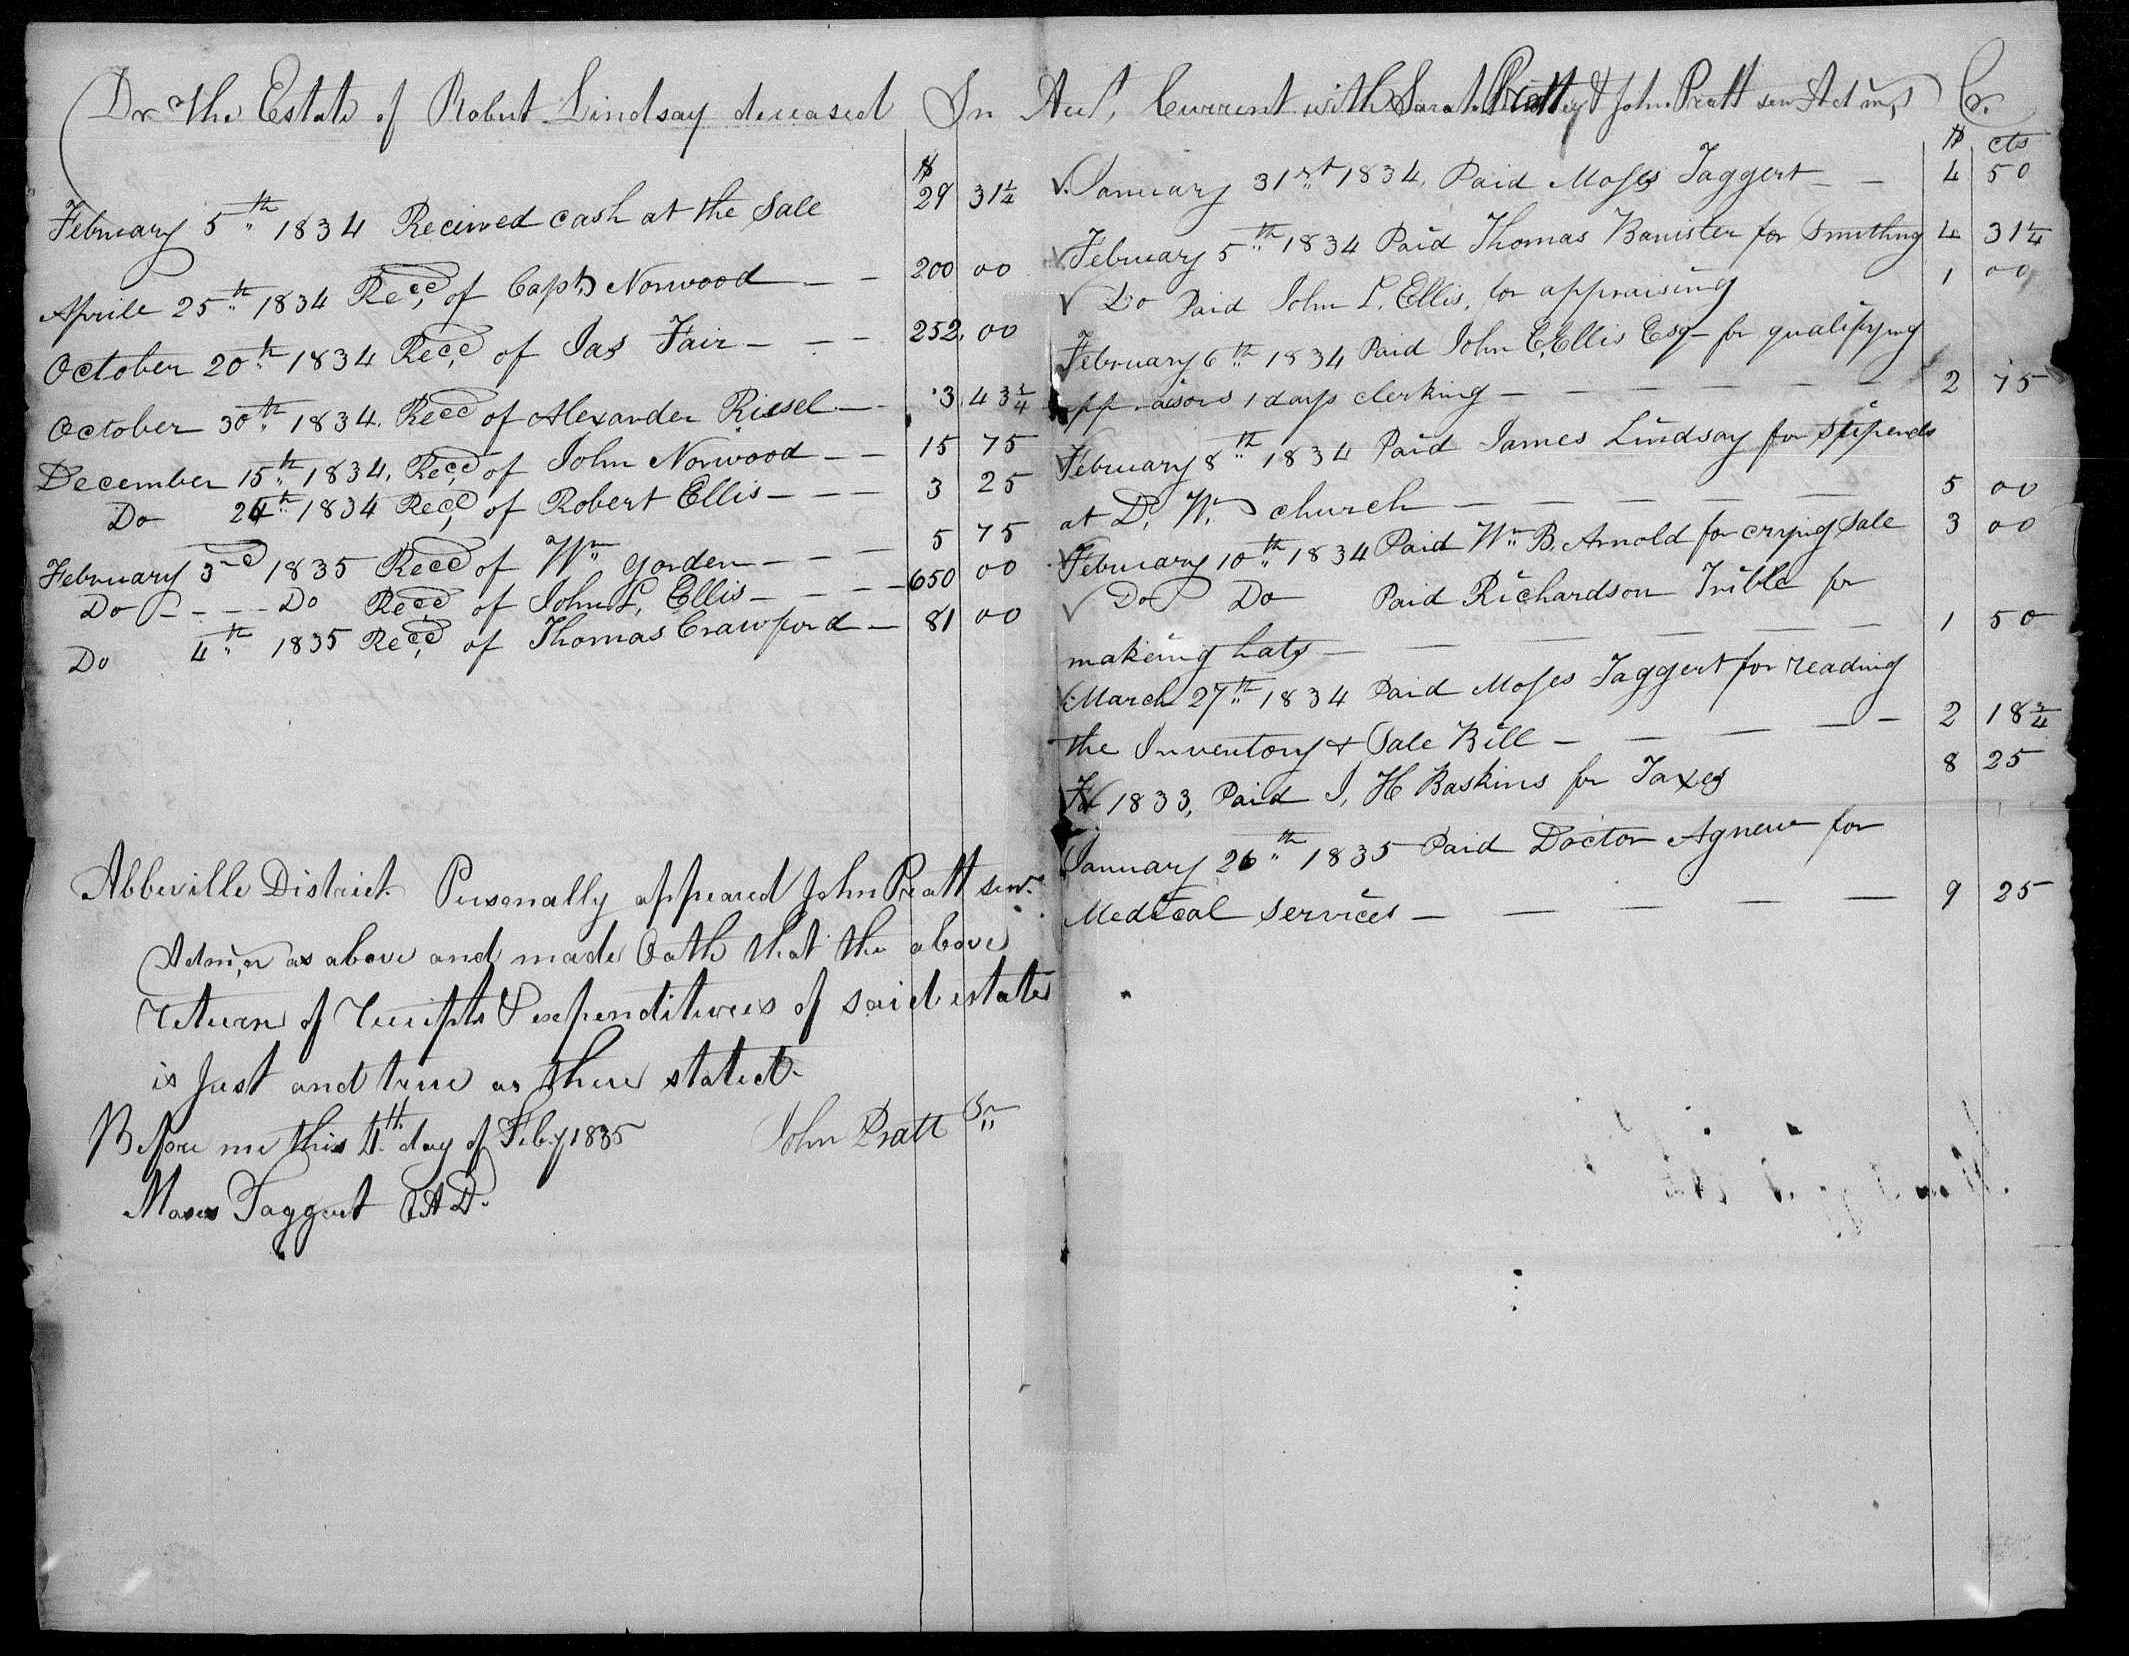 Dr The Estate of Robert Lindsay deceased In Acct, Current with Sarah & John Pratt sen Admrs, Cr.
$
February 5th 1834 Received cash at the Sale 29 31 1/4
Aprile 25th 1834 Recd of Capt Norwood 200 00
October 20th 1834 Recd of Jas Fair 252. 00
October 30th 1834. Recd of Alexander Riesel 3. 43 3/4
December 15th 1834. Recd of John Norwood 15 75
Do 24th 1834 Recd of Robert Ellis 3 25
February 3d 1835 Recd of Wm Gorden 5 75
Do Do Recd of John L. Ellis 650 00
Do 4th 1835 Recd of Thomas Crawford 81 00
Abbeville District Personally appeared John Pratt sen.
Admr, as above and made Oath that the above
return of receipts & expenditures of said estate
is Just and true as there stated
Before me this 4th day of Feby 1835 John Pratt Sr
Moses Taggert O.A.D.
$ cts
January 31st 1834, Paid Moses Taggert 4 50
February 5th 1834 Paid Thomas Banister for Smithing 4 31 1/4
Do Paid John L. Ellis, for appraising 1 00
February 6th 1834 Paid John C. Ellis Esq for qualifying
appraisors 1 days clerking 2 75
February 8th 1834 Paid James Lindsay for stipends
at D. W. church 5 00
February 10th 1834 Paid Wm B. Arnold for crying Sale 3 00
Do Do Paid Richardson Trible for
makeing hats 1 50
March 27th 1834 Paid Moses Taggert for reading
the Inventory & Sale Bill 2 18 3/4
For 1833, Paid J, H Baskins for Taxes 8 25
January 26th 1835 Paid Doctor Agnew for
Medical services 9 25